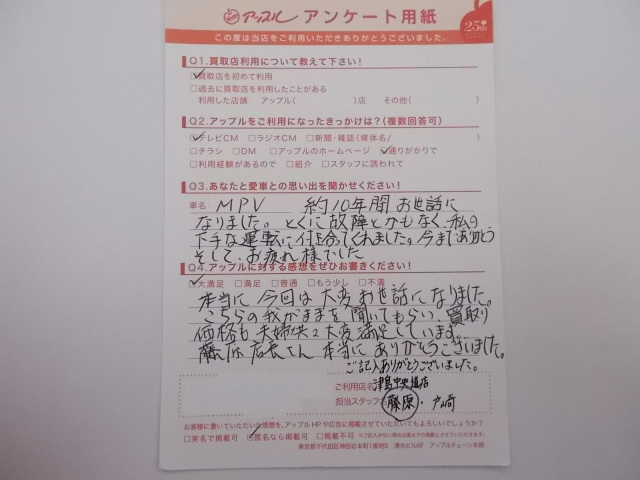 アップル アンケート用紙
25th
この度は当店をご利用いただきありがとうございました。
Q1.買取店利用について教えて下さい!
□買取店を初めて利用
□過去に買取店を利用したことがある
利用した店舗 アップル( )店 その他( )
Q2.アップルをご利用になったきっかけは?(複数回答可)
□テレビCM □ラジオCM □新聞・雑誌(媒体名/ )
□チラシ □DM □アップルのホームページ □通りがかりで
□利用経験があるので □紹介 □スタッフに誘われて
Q3.あなたと愛車との思い出を聞かせください!
車名 MPV 約10年間お世話に
なりました。とくに故障とかもなく、私の
下手な運転に付き合ってくれました。今までありがとう
そして、お疲れ様でした
Q4.アップルに対する感想をぜひお書きください!
□大満足 □満足 □普通 □もう少し □不満
本当に今回は大変お世話になりました。
こちらの我がままを聞いてもらい、買取り
価格も夫婦共々大変満足しています。
藤原店長さん本当にありがとうございました。
ご記入ありがとうございました。
ご利用店名 津島中央道店
担当スタッフ 藤原・戸崎
お客様に書いていただいた感想を、アップルHPや広告に掲載させていただいてもよろしいでしょうか?
□実名で掲載可 □匿名なら掲載可 □掲載不可 ※ご記入がない場合は匿名での掲載とさせていただきます。
東京都千代田区神田岩本町1番地5 清水ビル6F アップルチェーン本部